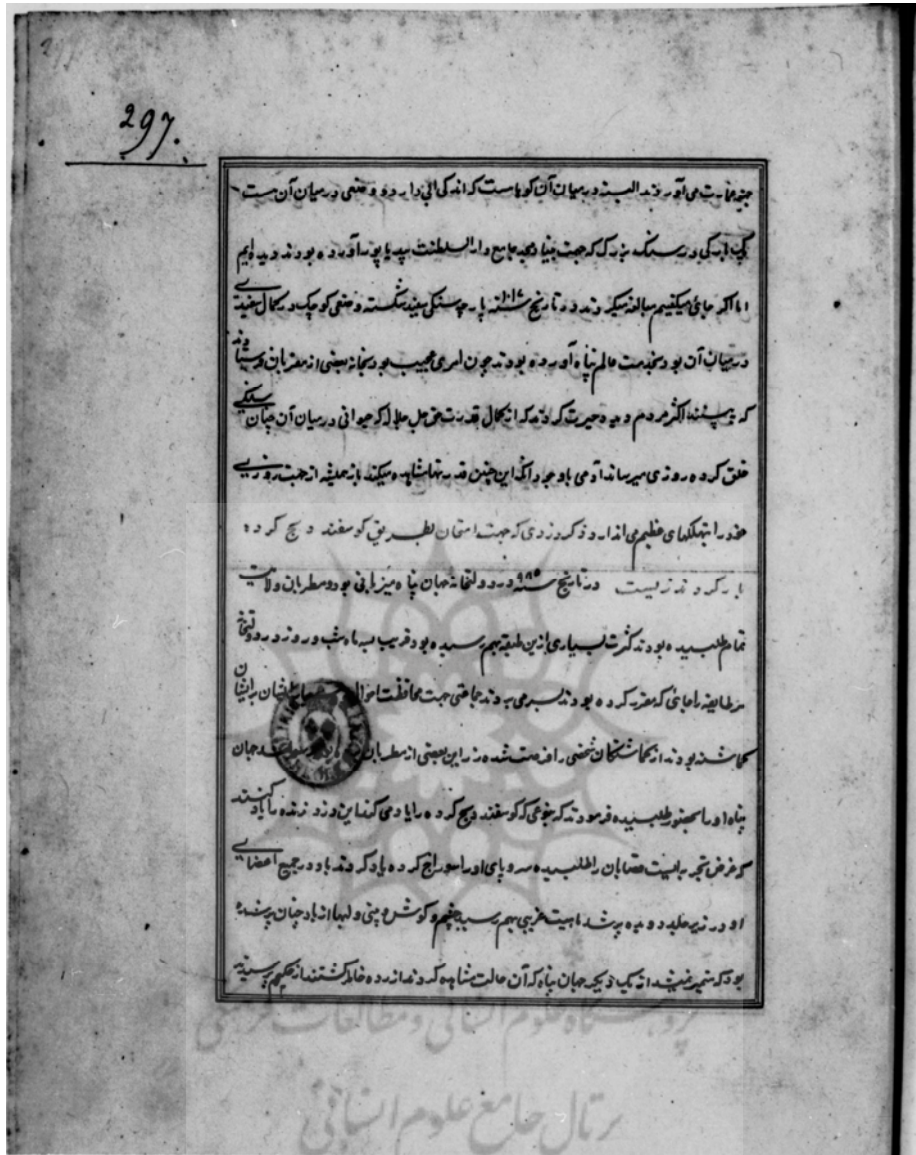 297.
جهة عمارت می آوردند البته در میان آن کوهاست که اندکی آبی دارد و وضعی در میان آن هست
یک بارکی در سنک بزرک که جهت بنیاد مسجد جامع دار السلطنت بیدیاپور آورده بودند دیده ایم
اما اکر جای میکفتیم مبالغه میکردند در تاریخ سنه ۱۰۱۷ پارچه سنکی سفید شکسته وضعی کوچک در کمال سفیدی
در میان آن بود بخدمت عالم پناه آورده بودند چون امری عجیب بود بخانه بعضی از مقربان فرستادند
که ببینند اکثر مردم دیده حیرت کردند که از کمال قدرت حق جل جلاله که حیوانی در میان آن چنان سنکی
خلق کرده روزی میرساند آدمی باوجود آنکه این چنین قدرتها مشاهده میکند باز همیشه از جهت روزی
خود را بتهلکهای عظیم می اندازد ذکر دزدی که جهت امتحان بطریق کوسفند ذبح کرده
باد کردند نزیست در تاریخ سنه ۹۸۵ در دولتخانه جهان پناه میزبانی بود و مطربان ولایت
تمام طلبیده بودند کثرت بسیاری ازین طبقه بهم رسیده بود قریب سه ماه شب و روز در دولتخانه
هر طایفه را جای که مقرر کرده بودند بسر می بردند جماعتی جهت محافظت احوال ایشان
کماشته بودند از کماشتکان شخصی را فرصت شده زر این بعضی از مطربان جهان
پناه او را بحضور طلبیده فرمودند که بنوعی که کوسفند ذبح کرده را باد می کنند این دزد زنده را باد کنند
که غرض تجربه ایست قصابان را طلبیده سر و پای او را سوراخ کرده باد کردند باد در جمیع اعضای
او در زیر جلد دویده پر شد هیبت غریبی بهم رسید چشم و کوش و بینی و لبها از باد چنان پر شده
بود که تمیز نمیشد از یک دیکر جهان پناه که آن حالت مشاهده کردند آزرده خاطر کشتند از حکیم پرسیدند
پژوهشگاه علوم انسانی و مطالعات فرهنگی
پرتال جامع علوم انسانی